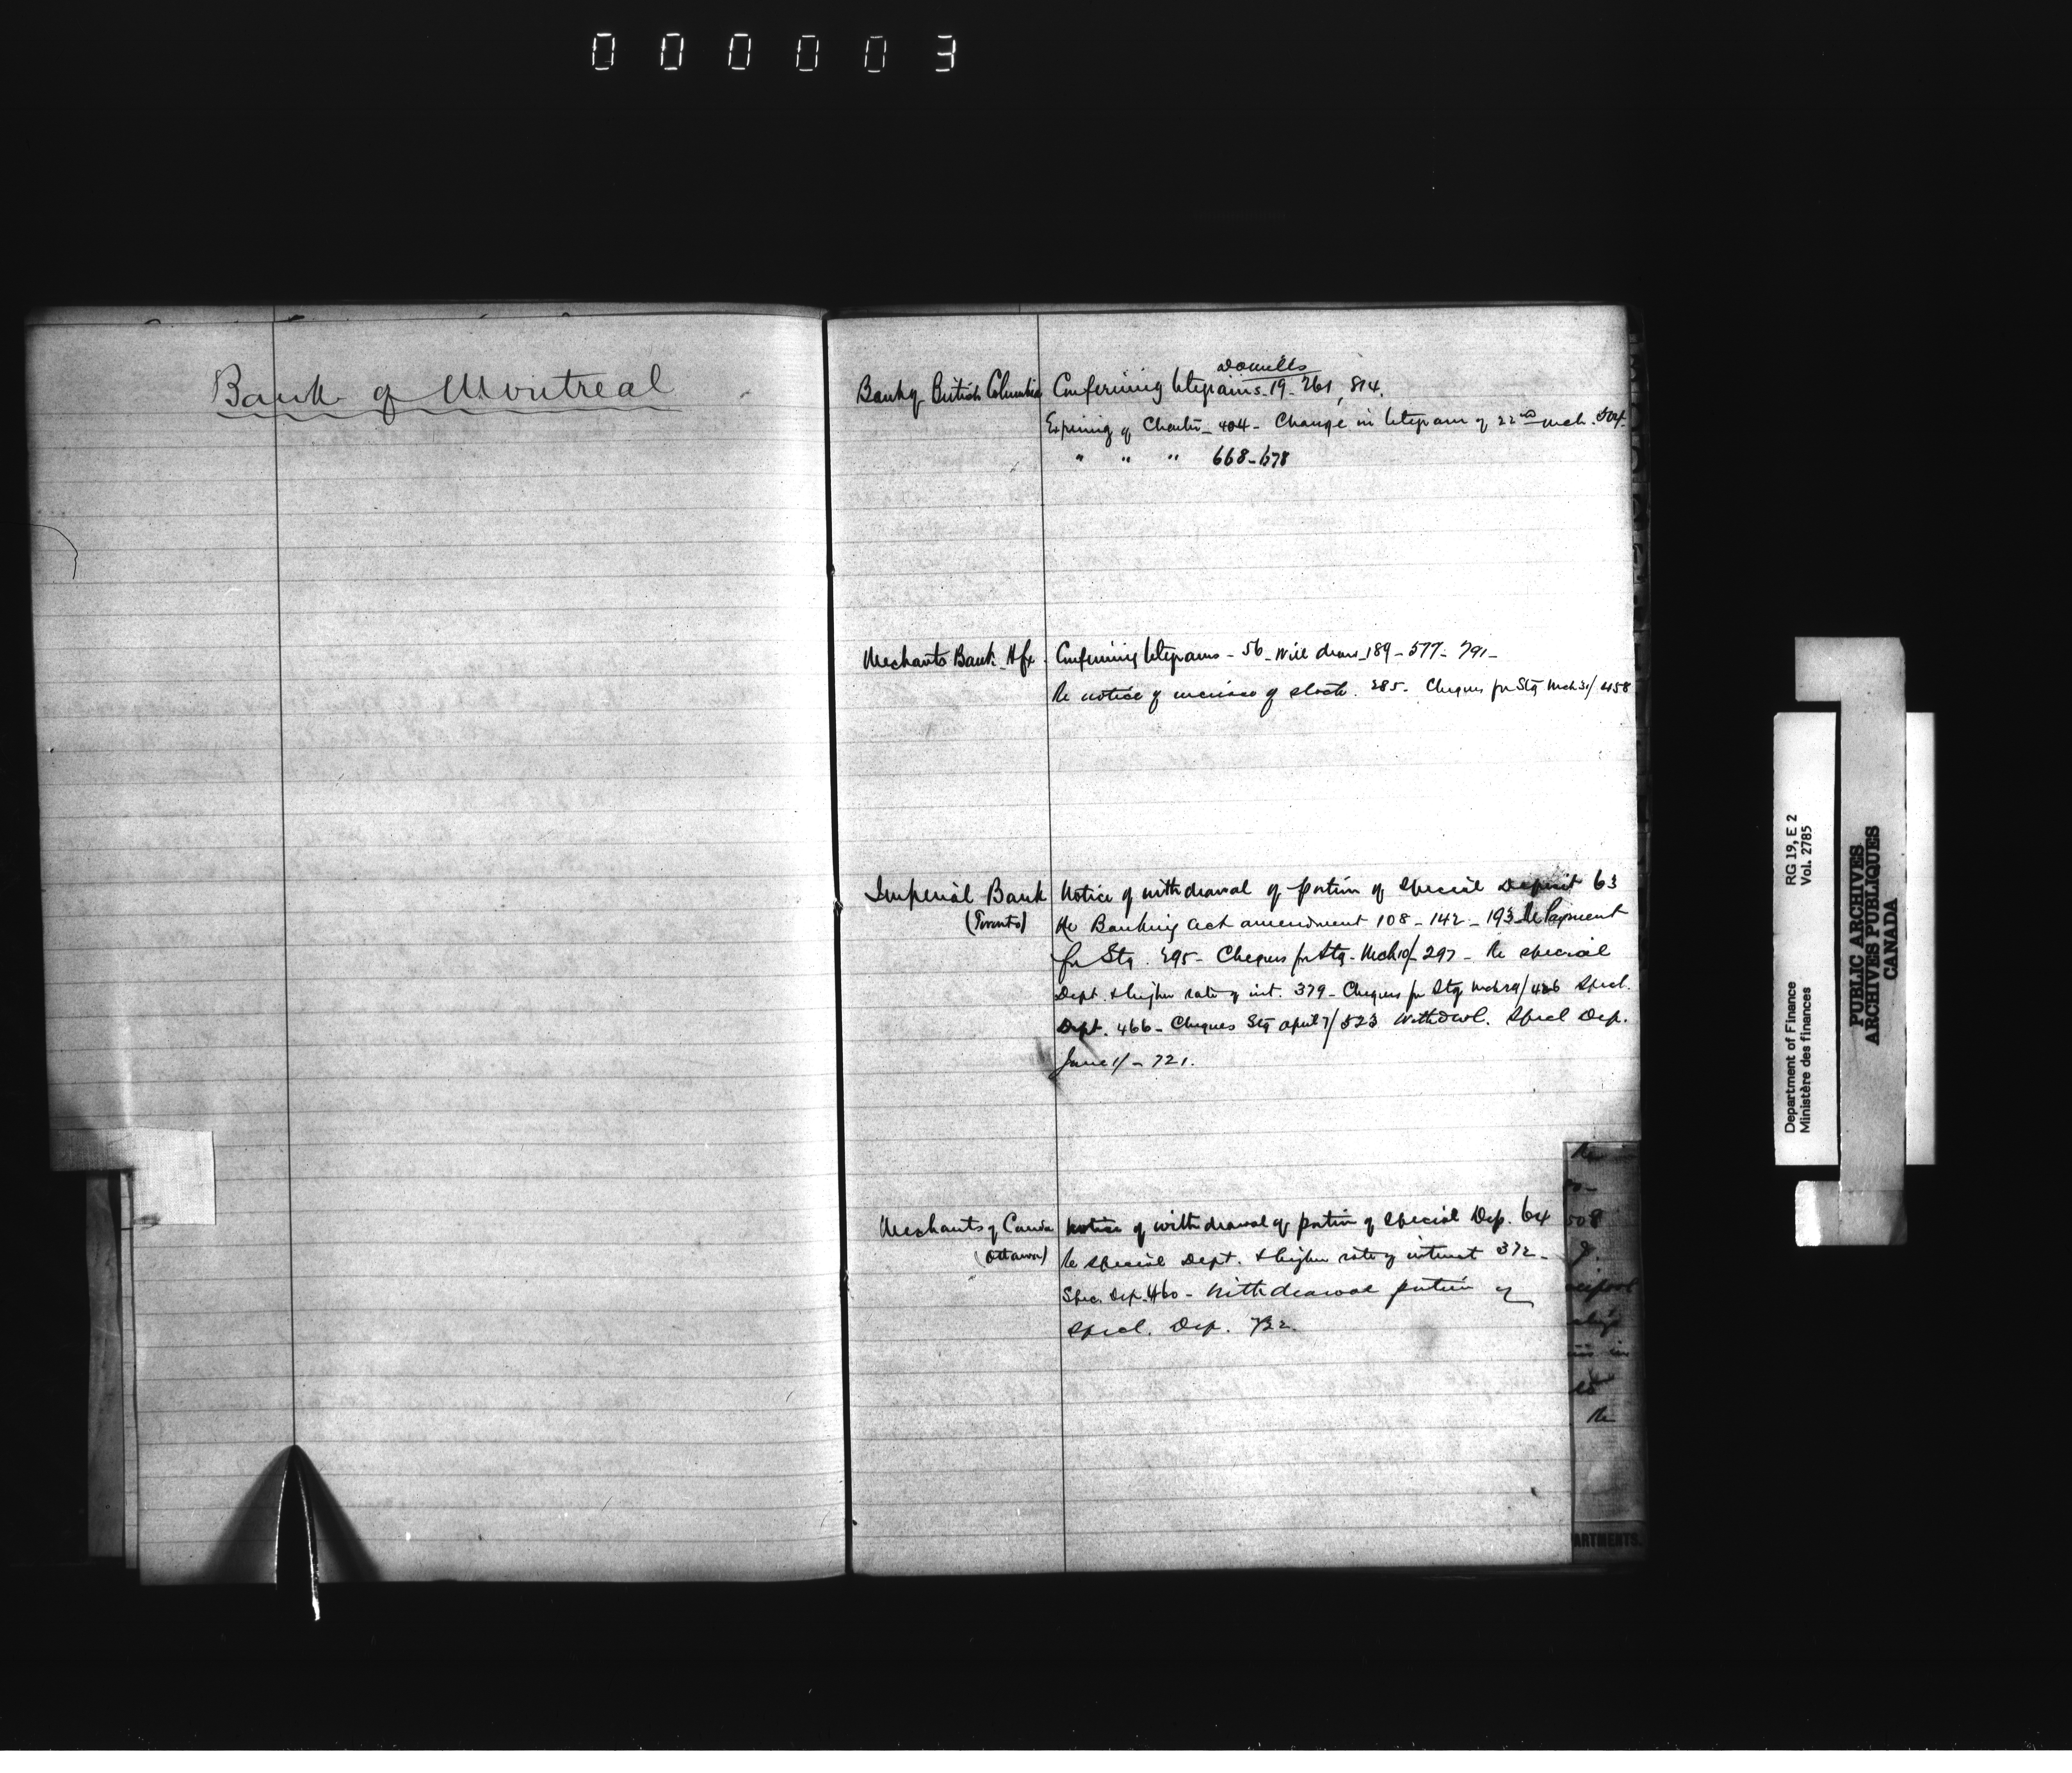 000003
Bank of Montreal
Bank of British Columbia Confirming telegrams. 19 - 261, 814.
Expiring of Charter - 404 - Change in telegram of 22nd Mch. 504.
" " " 668-678
Merchants Bank Hfx. Confirming telegrams - 56 - Will draw 189 - 577 - 791 -
Re notice of increase of stock. 285. Cheques for Stg Mch 31/ 458
Imperial Bank Notice of withdrawal of portion of special Deposit 63
(Toronto) Re Banking act amendment 108 - 142 - 193 - Re Payment
for Stg. 295 - Cheques for Stg. Mch 10/ 297 - Re special
Dept. & higher rate of int. 379 - Cheques for Stg Mch 29/ 426 Specl.
Dept. 466 - Cheques Stg April 7/ 523 Withdwl. Specl Dep.
June 1/ - 721.
Merchants of Canda Notice of withdrawal of portion of special Dep. 64
(Ottawa) Re special Dept. & higher rate of interest 372 -
Spec. Dep. 460 - Withdrawal portion of
Specl. Dep. 732.
Re
508
Re
ARTMENTS.
Department of Finance RG 19, E 2
Ministère des finances Vol. 2785
PUBLIC ARCHIVES
ARCHIVES PUBLIQUES
CANADA